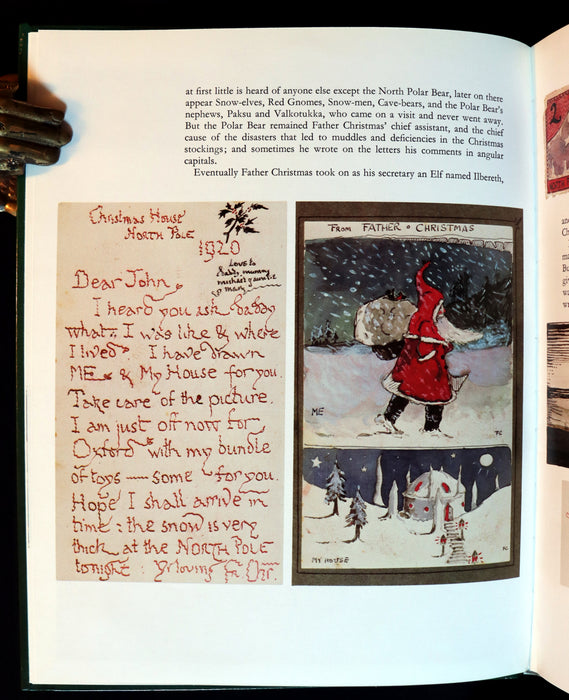 at first little is heard of anyone else except the North Polar Bear, later on there
appear Snow-elves, Red Gnomes, Snow-men, Cave-bears, and the Polar Bear's
nephews, Paksu and Valkotukka, who came on a visit and never went away.
But the Polar Bear remained Father Christmas' chief assistant, and the chief
cause of the disasters that led to muddles and deficiencies in the Christmas
stockings; and sometimes he wrote on the letters his comments in angular
capitals.
Eventually Father Christmas took on as his secretary an Elf named Ilbereth,
Christmas House
NORTH POLE
1920
Love to
mummy
Dear John,
I heard you ask daddy
what I was like & where
I lived. I have drawn
ME & My House for you.
Take care of the picture.
I am just off now for
Oxford with my bundle
of toys — some for you.
Hope I shall arrive in
time: the snow is very
thick at the NORTH POLE
tonight: Yr loving Fr. Chr.
FROM FATHER CHRISTMAS
ME
FC
MY HOUSE
FC
2